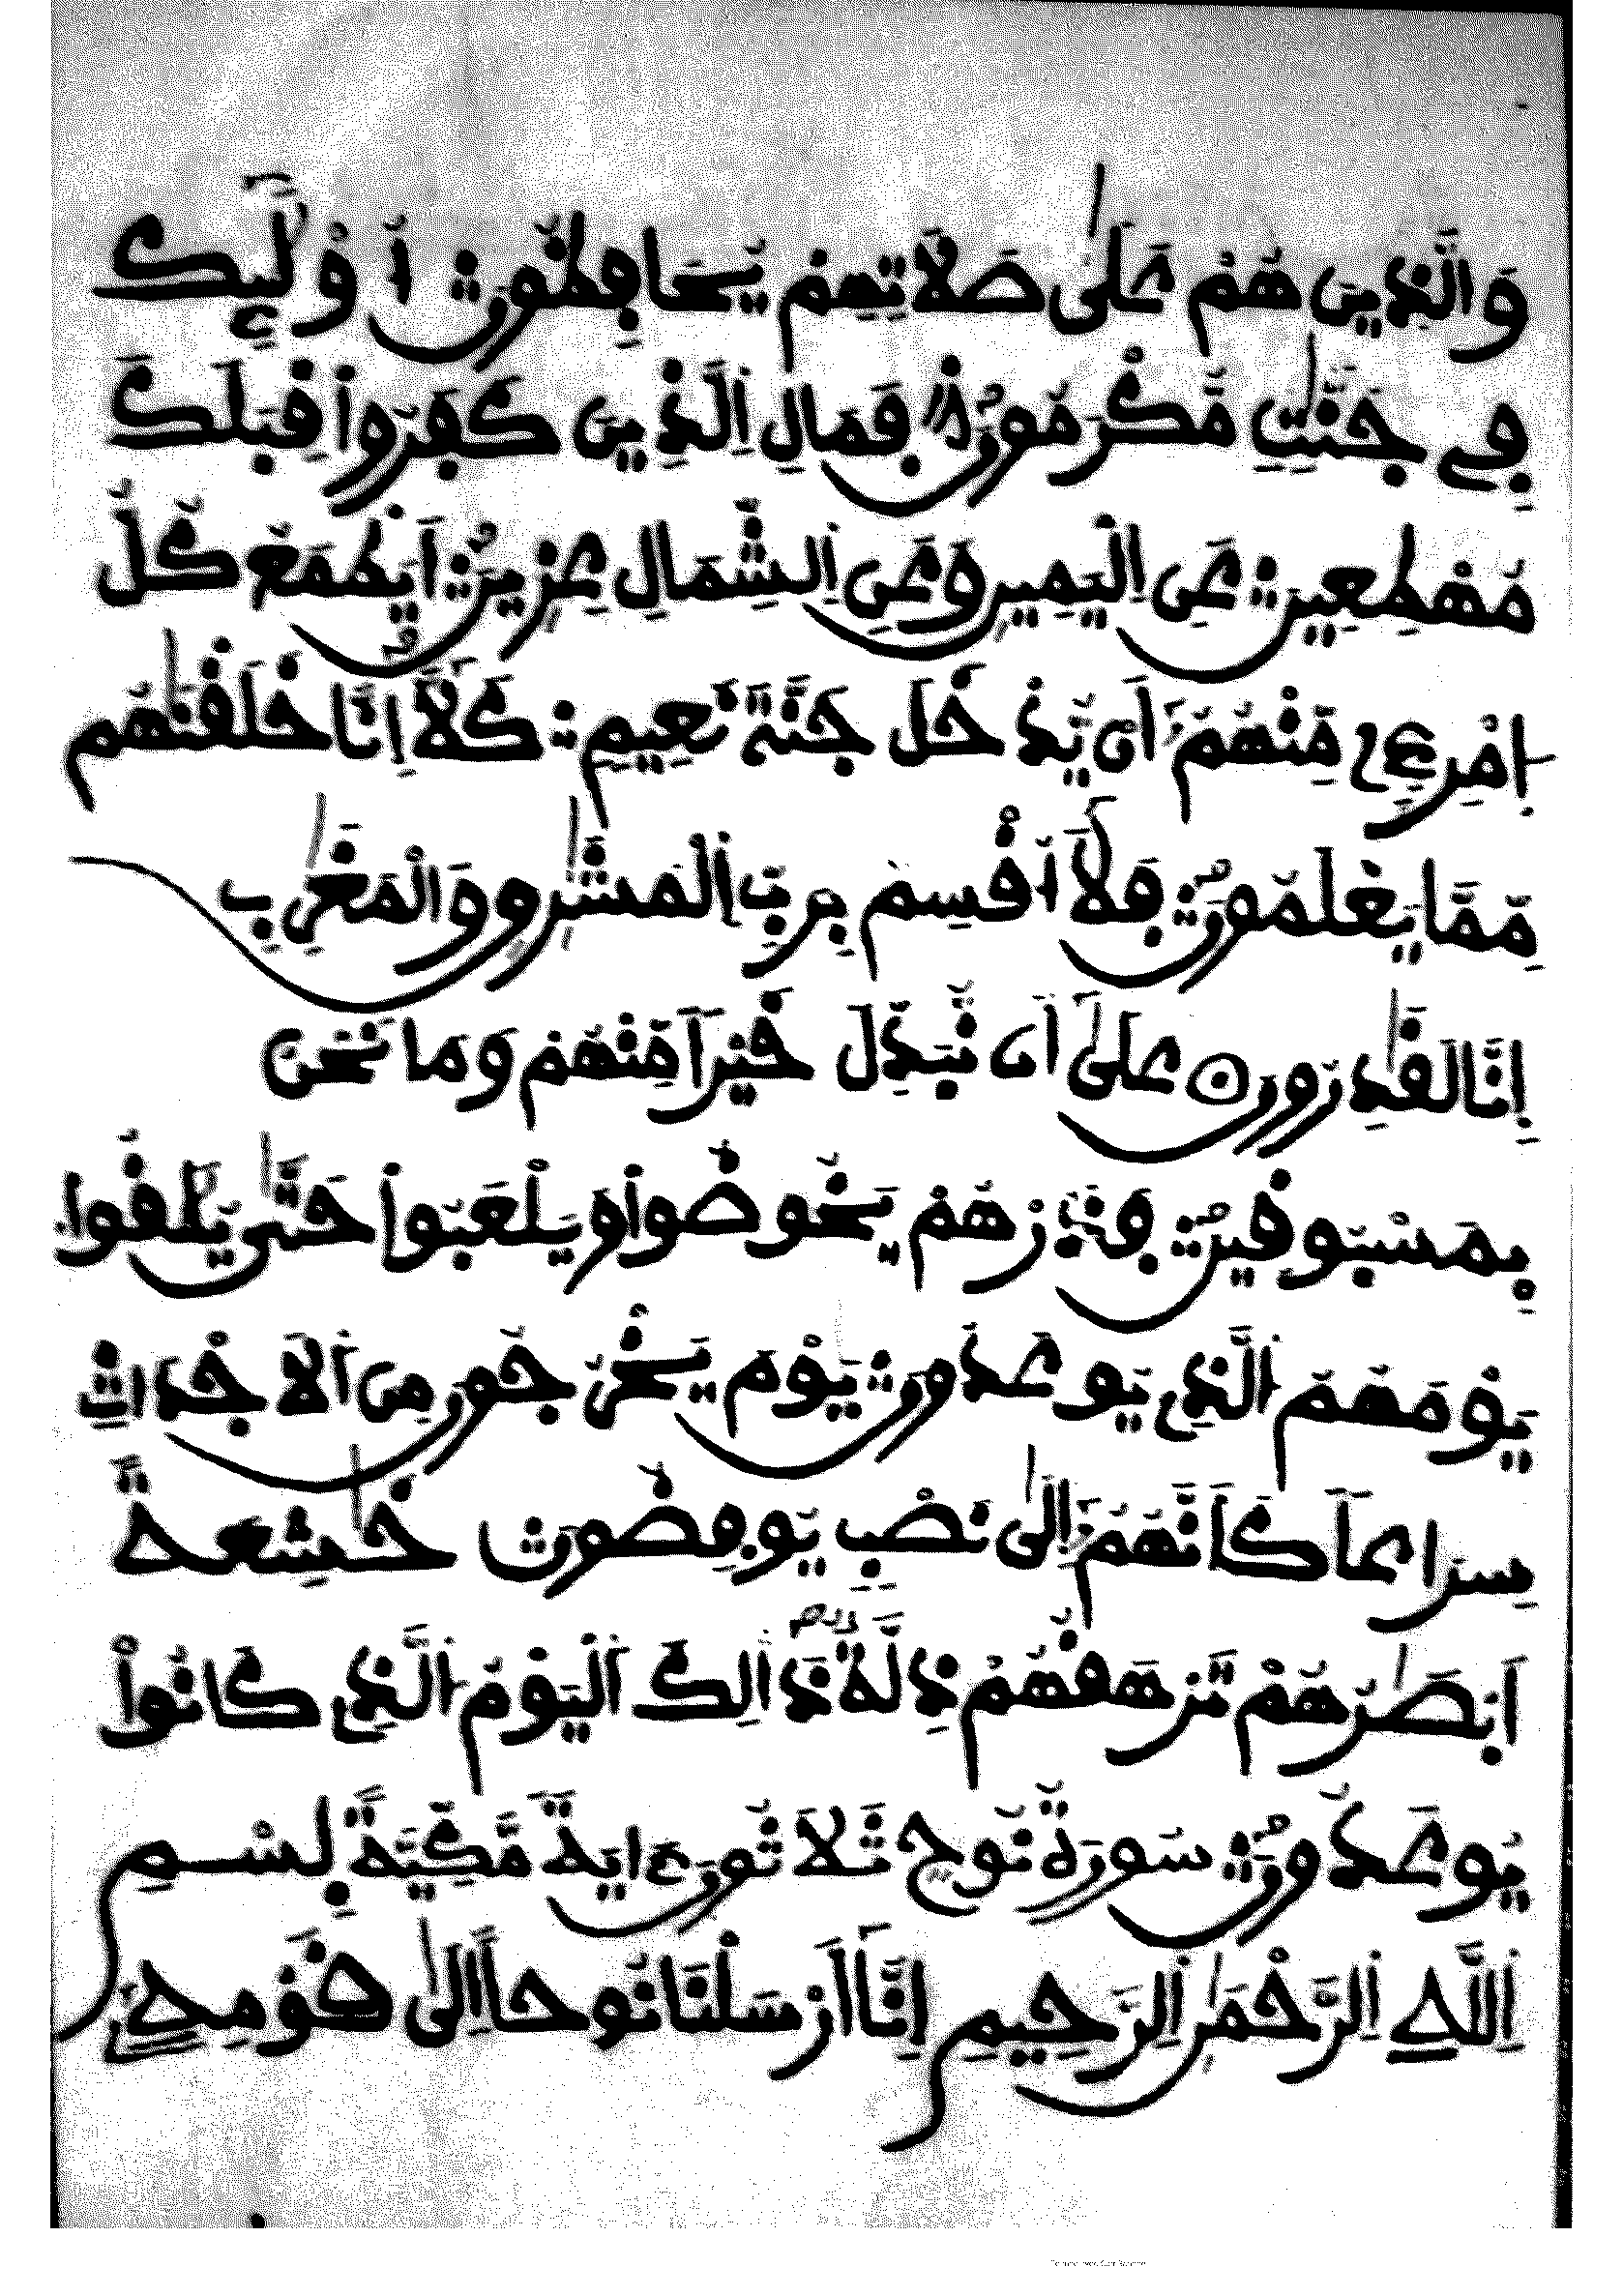 وَالَّذِينَ هُمْ عَلَىٰ صَلَاتِهِمْ يُحَافِظُونَ أُوْلَٰٓئِكَ
فِي جَنَّٰتٍ مُّكْرَمُونَ فَمَالِ اِلَّذِينَ كَفَرُواْ قِبَلَكَ
مُهْطِعِينَ عَنِ اِلْيَمِينِ وَعَنِ اِلشِّمَالِ عِزِينَ أَيَطْمَعُ كُلُّ
اِمْرِےٕ مِّنْهُمُۥٓ أَنْ يُّدْخَلَ جَنَّةَ نَعِيمٍ كَلَّآ إِنَّا خَلَقْنَٰهُم
مِّمَّا يَعْلَمُونَ فَلَآ أُقْسِمُ بِرَبِّ اِلْمَشَٰرِقِ وَالْمَغَٰرِبِ
إِنَّا لَقَٰدِرُونَ عَلَىٰٓ أَن نُّبَدِّلَ خَيْراً مِّنْهُمْ وَمَا نَحْنُ
بِمَسْبُوقِينَ فَذَرْهُمْ يَخُوضُواْ وَيَلْعَبُواْ حَتَّىٰ يُلَٰقُواْ
يَوْمَهُمُ اُلَّذِي يُوعَدُونَ يَوْمَ يَخْرُجُونَ مِنَ اَلْأَجْدَاثِ
سِرَاعاً كَأَنَّهُمُۥٓ إِلَىٰ نَصْبٍ يُوفِضُونَ خَٰشِعَةً
أَبْصَٰرُهُمْ تَرْهَقُهُمْ ذِلَّةٌ ذَٰلِكَ اَلْيَوْمُ اُلَّذِي كَانُواْ
يُوعَدُونَ سُورَةُ نُوحٍ ثَلَاثُونَ ءَايَةً مَّكِّيَّةٌ بِسْمِ
اِللَّهِ اِلرَّحْمَٰنِ اِلرَّحِيمِ إِنَّآ أَرْسَلْنَا نُوحاً إِلَىٰ قَوْمِهِۦٓ